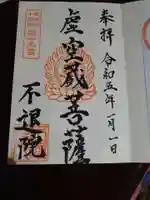 奉拝 令和五年一月一日
虚空蔵菩薩
不退院